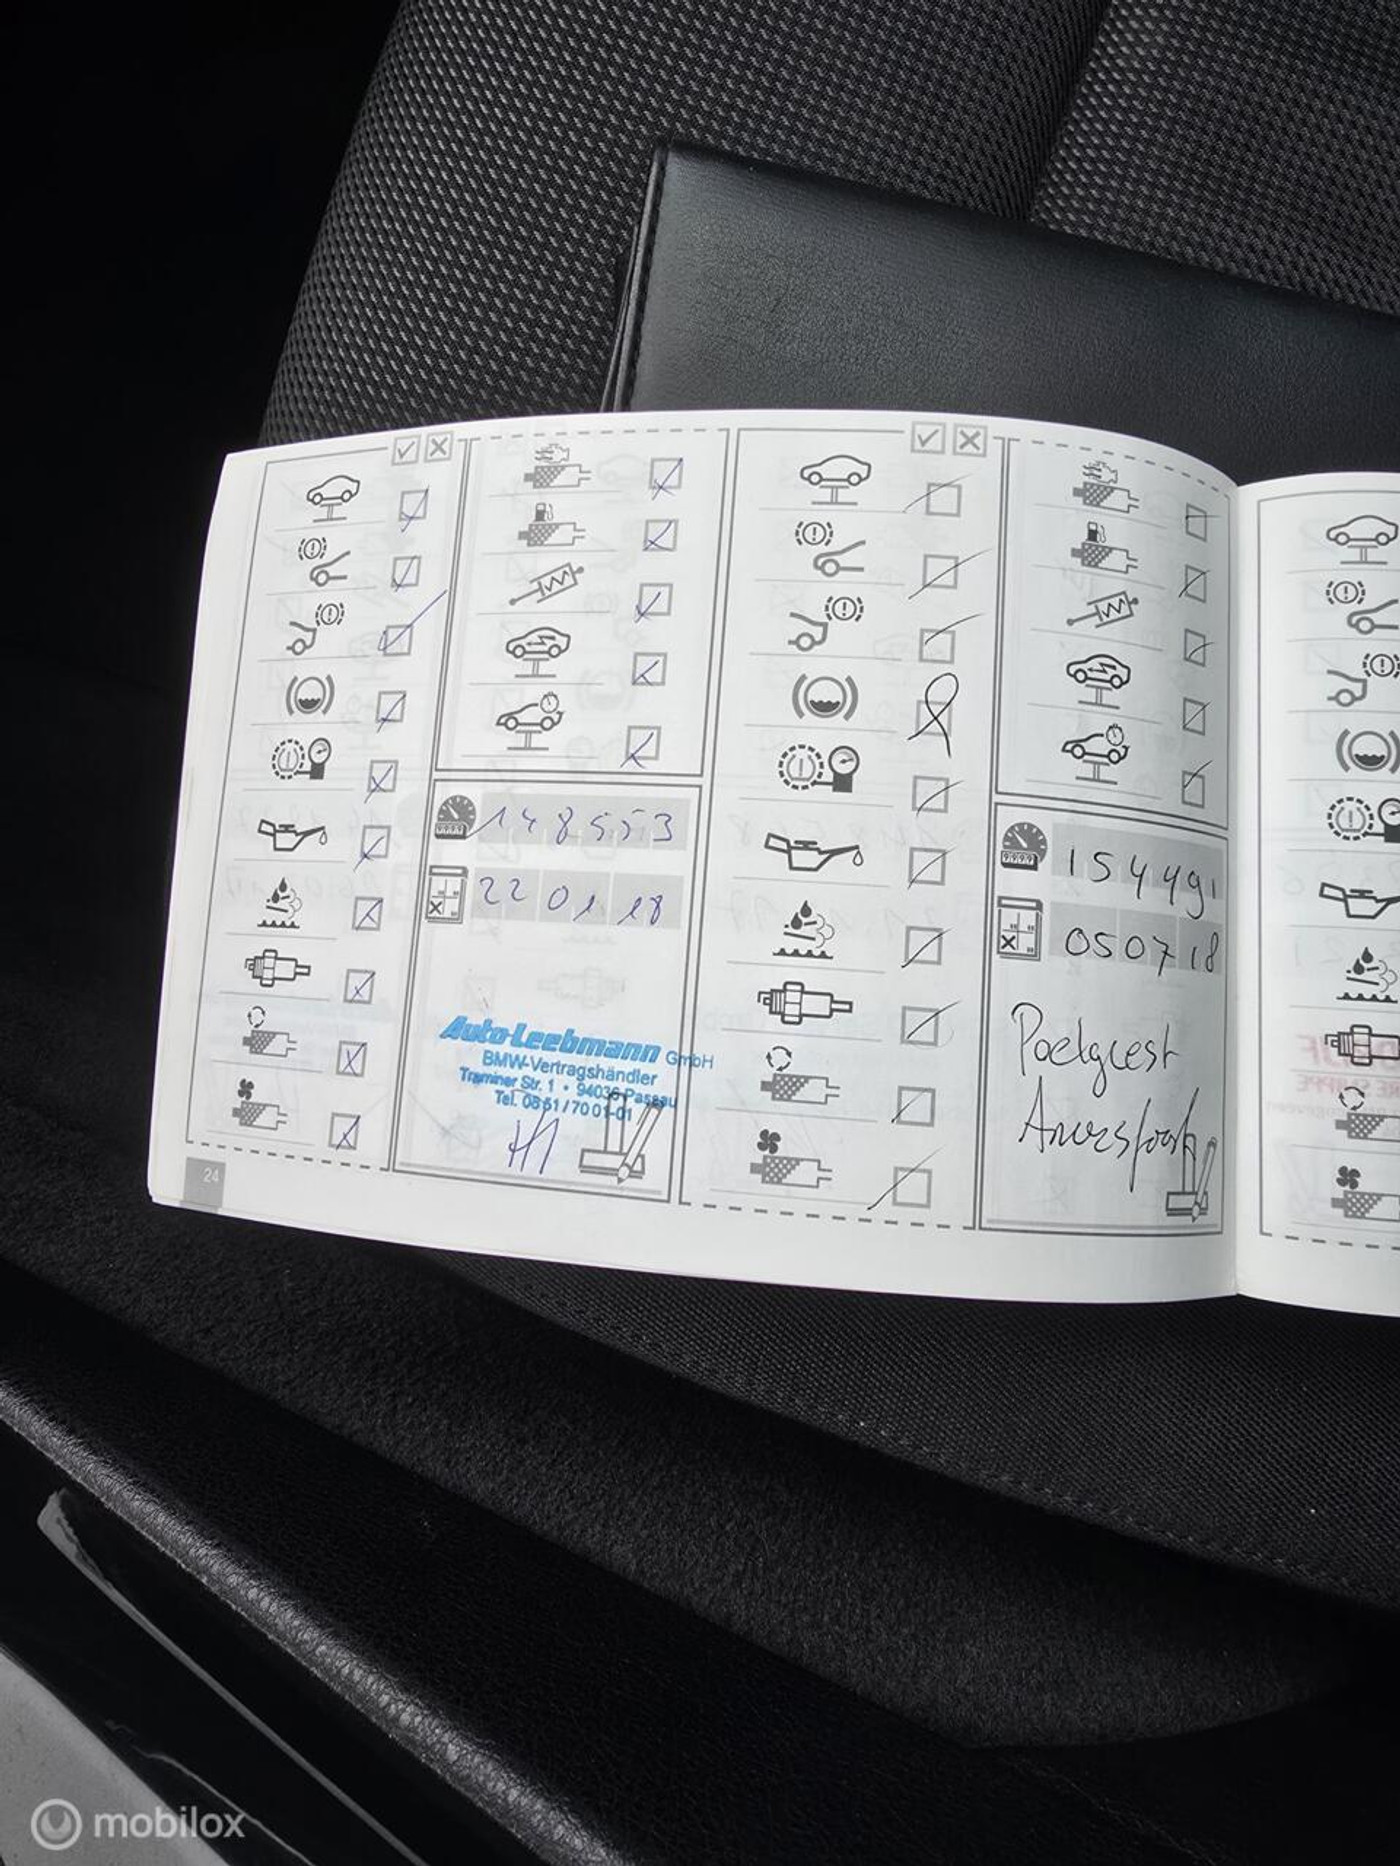 148553
22 01 18
Auto-Leebmann GmbH
BMW-Vertragshändler
Traminer Str. 1 • 94036 Passau
Tel. 0851/7001-01
24
154491
050718
Poelgeest
Amersfoort
mobilox